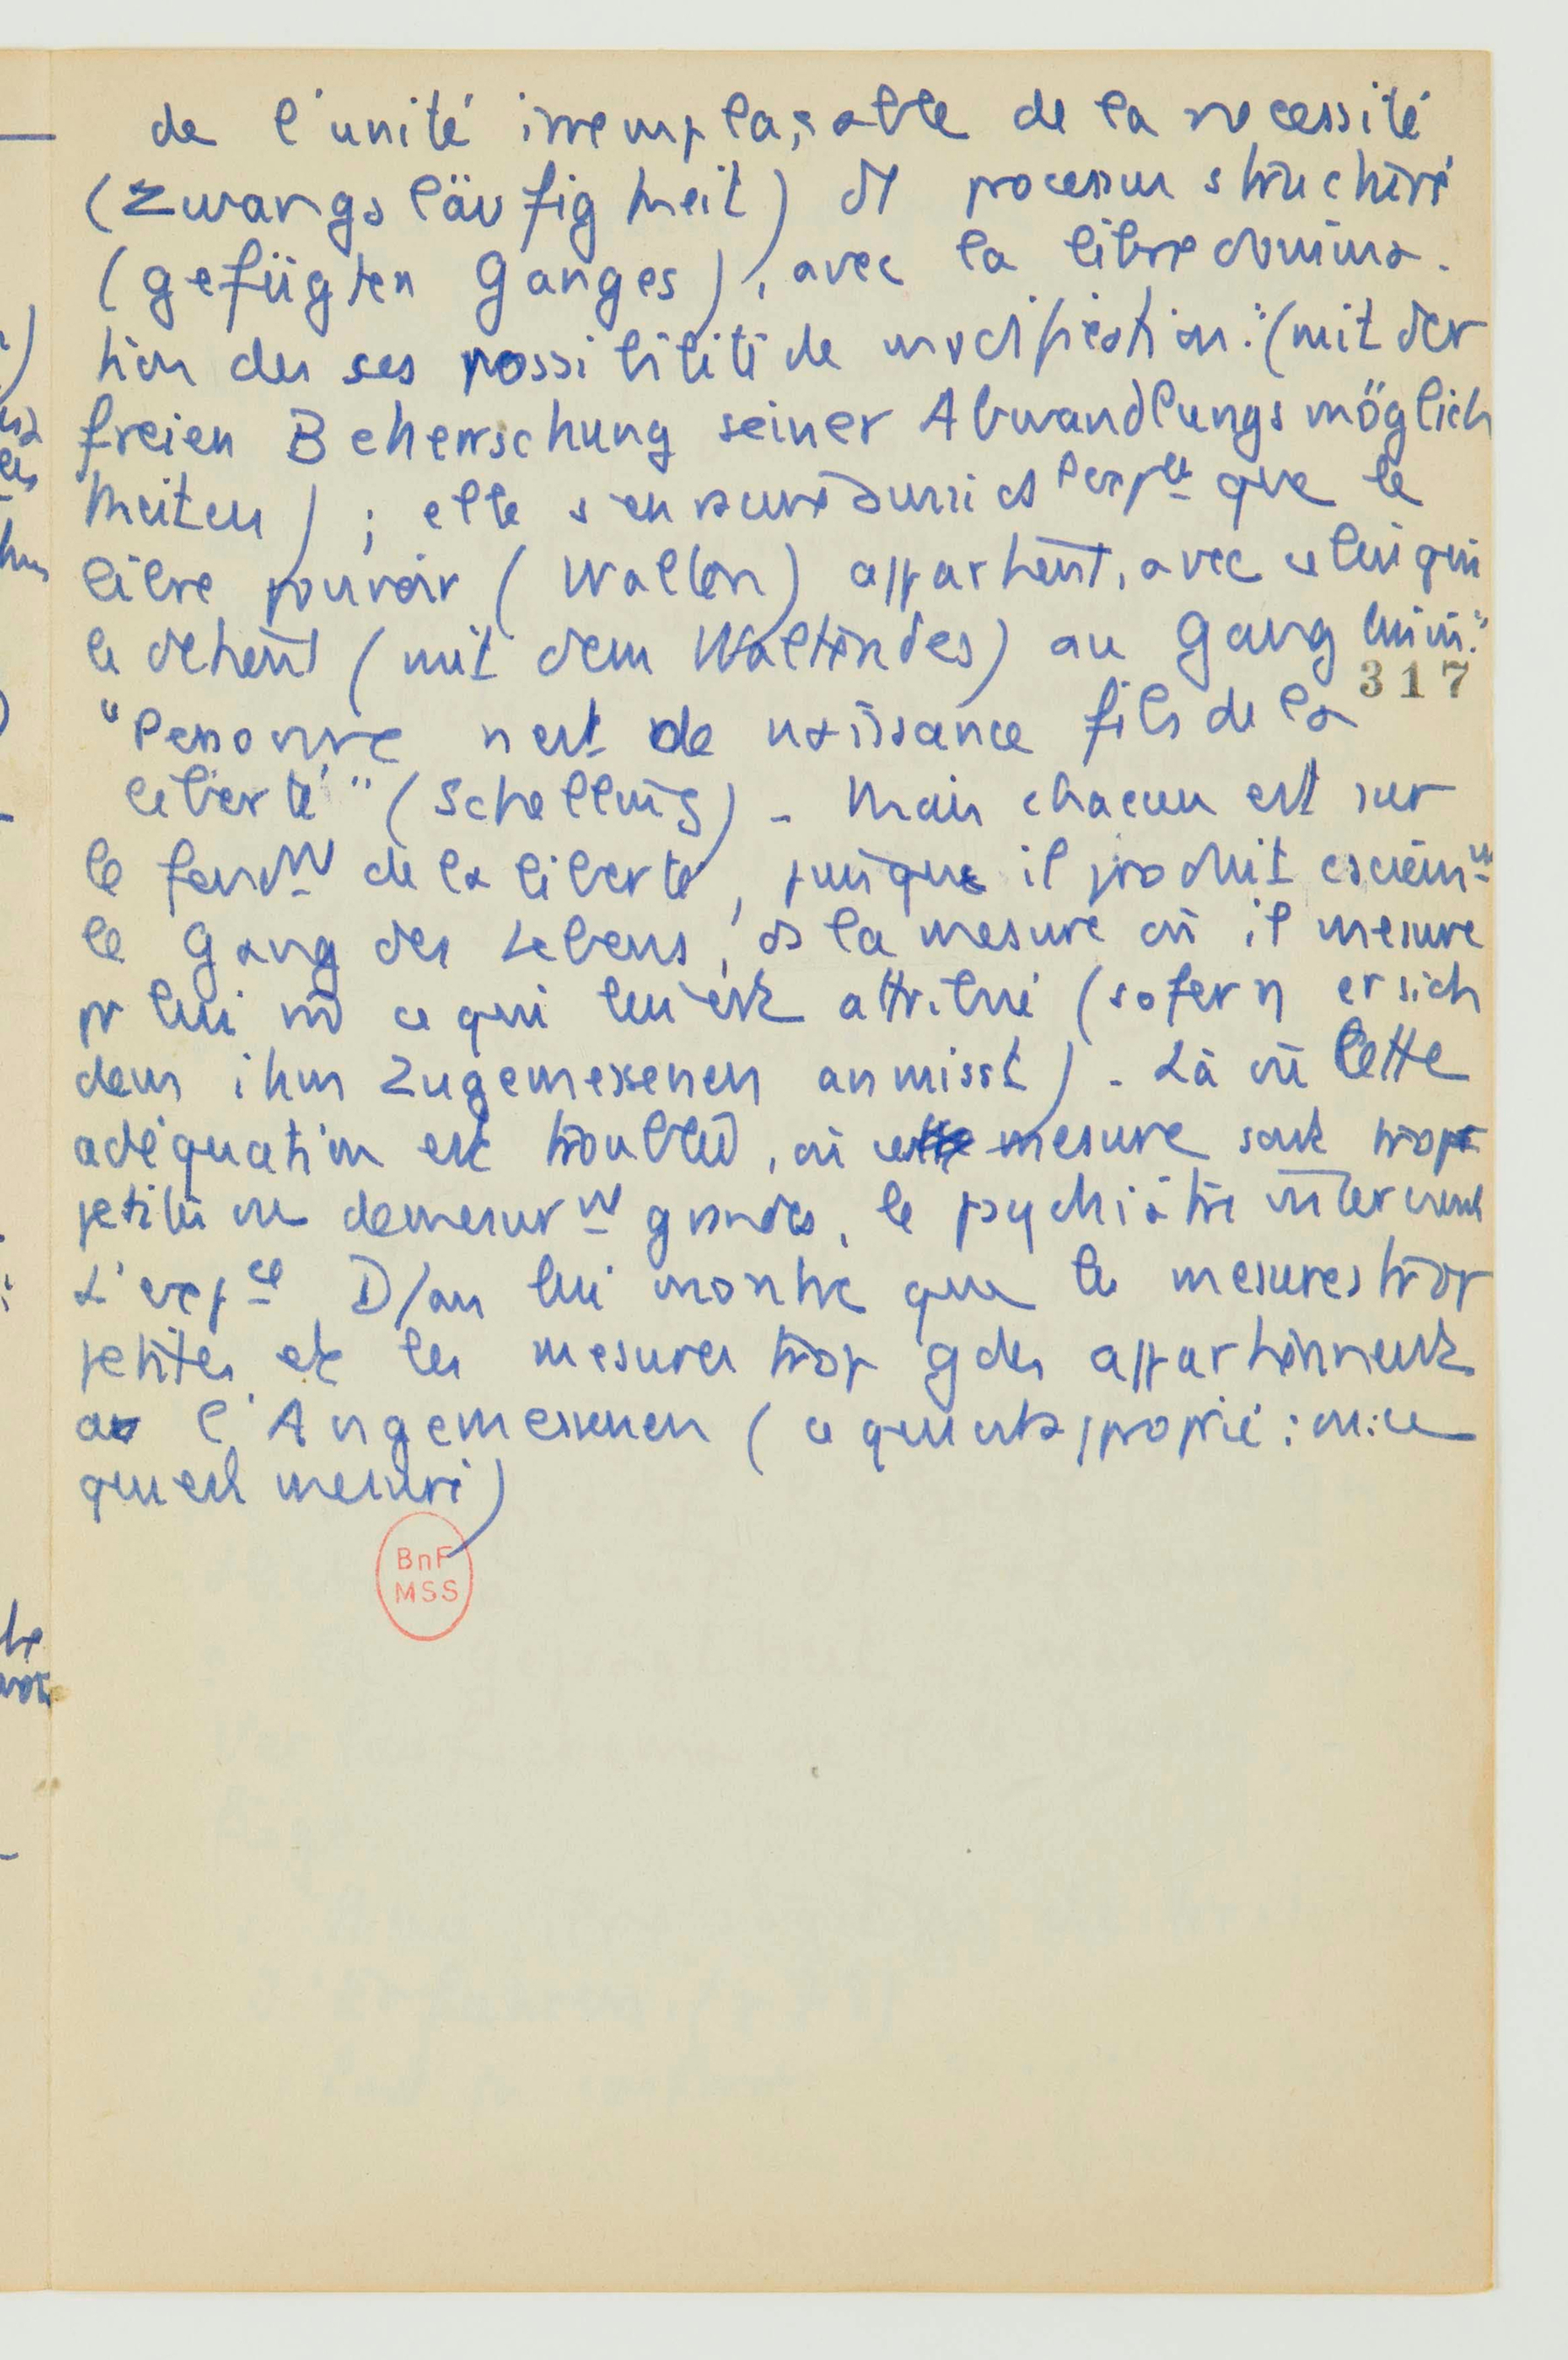 de l'unité irremplaçable de la necessité
(Zwangsläufigkeit) dt processus structuré
(gefügten Ganges), avec la libre domina-
tion des ses possibilités de modification : (mit der
freien Beherrschung seiner Abwandlungsmöglich
keiten) ; elle s'en que le
libre pouvoir (Walten) appartient, avec celui qui
le détient (mit dem Waltendes) au Gang lui-mi."
317
"Personne n'est de naissance fils de la
liberté" (Schelling) - Mais chacun est sur
le fondnt de la liberté, puisque il produit
le Gang des Lebens, ds la mesure où il mesure
pr lui m ce qui lui est attribué (sofern er sich
dem ihm Zugemessenen anmisst) - Là où cette
adéquation est troublée, où mesure sont trop
petites ou demesurnt grandes, le psychiatre intervient
L'expce D/an lui montre que les mesures trop
petites et les mesures trop gdes appartiennent
à l'Angemessenen (ce qui est approprié : ou : ce
qui est mesuré)
BnF
MSS